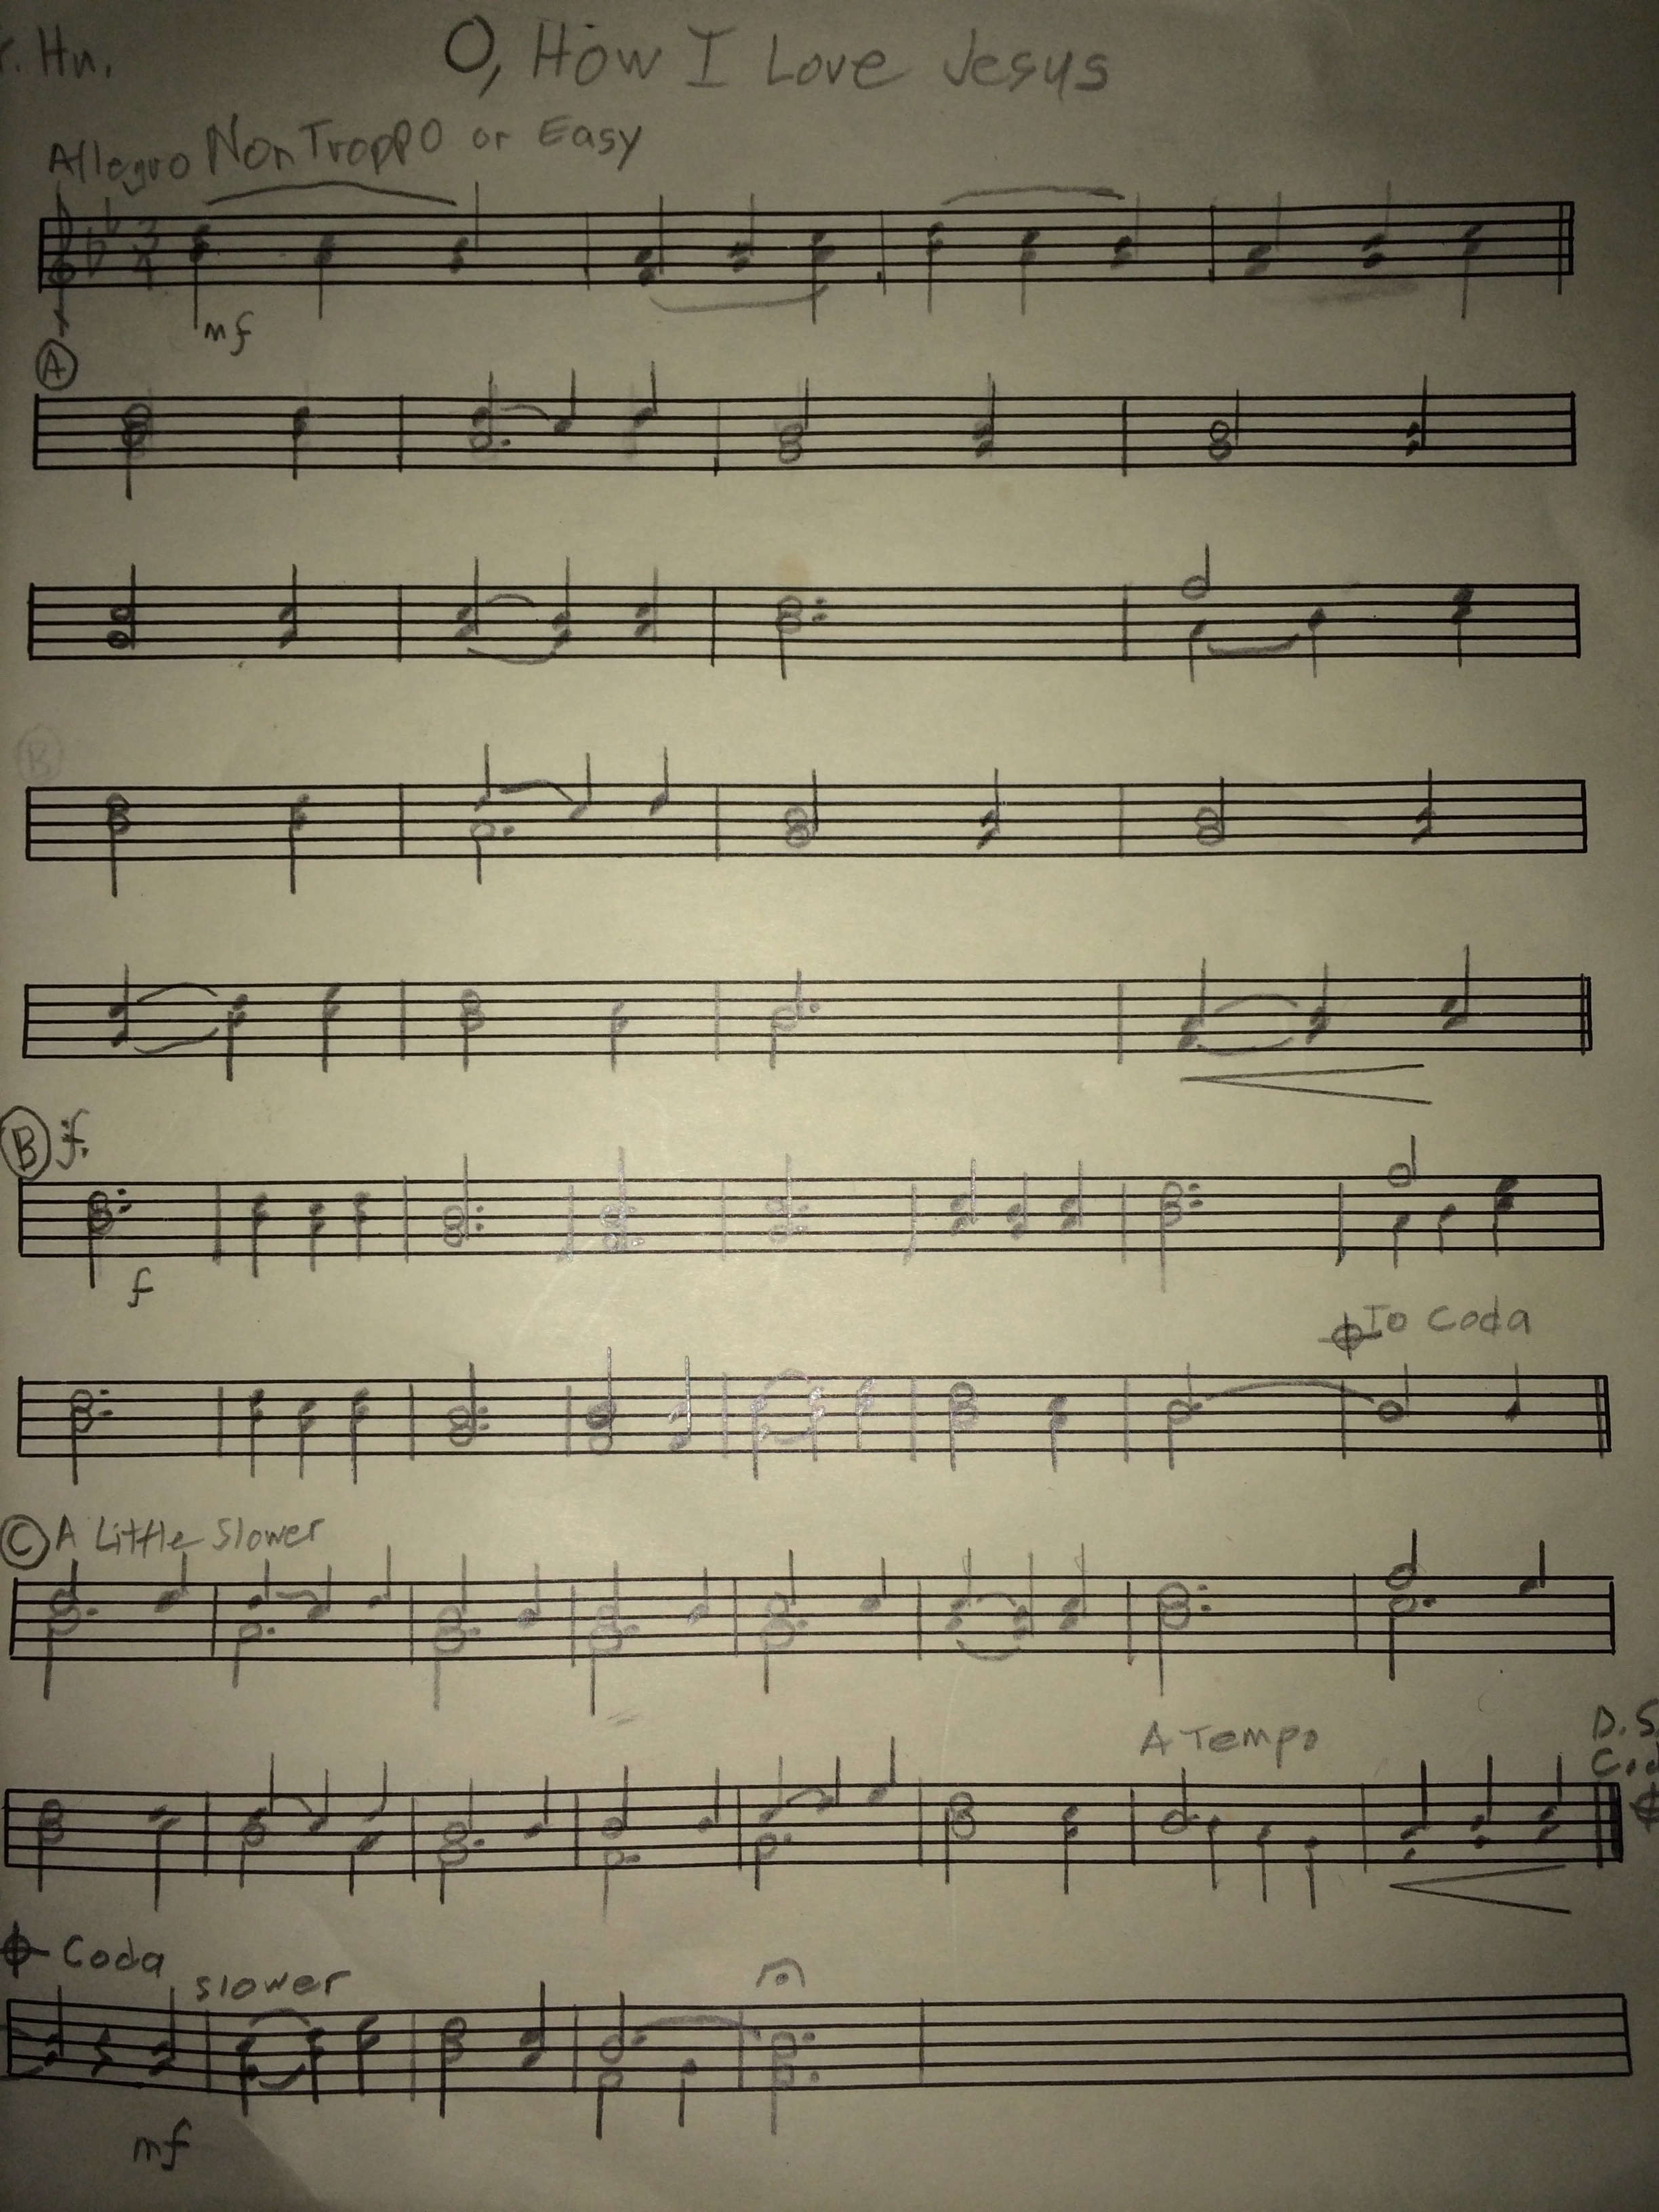 . Hn. O, How I Love Jesus
Allegro Non Troppo or Easy
3
4
mf
A
B
B
f
To Coda
C A Little Slower
A Tempo
D.S.
Coda
slower
mf